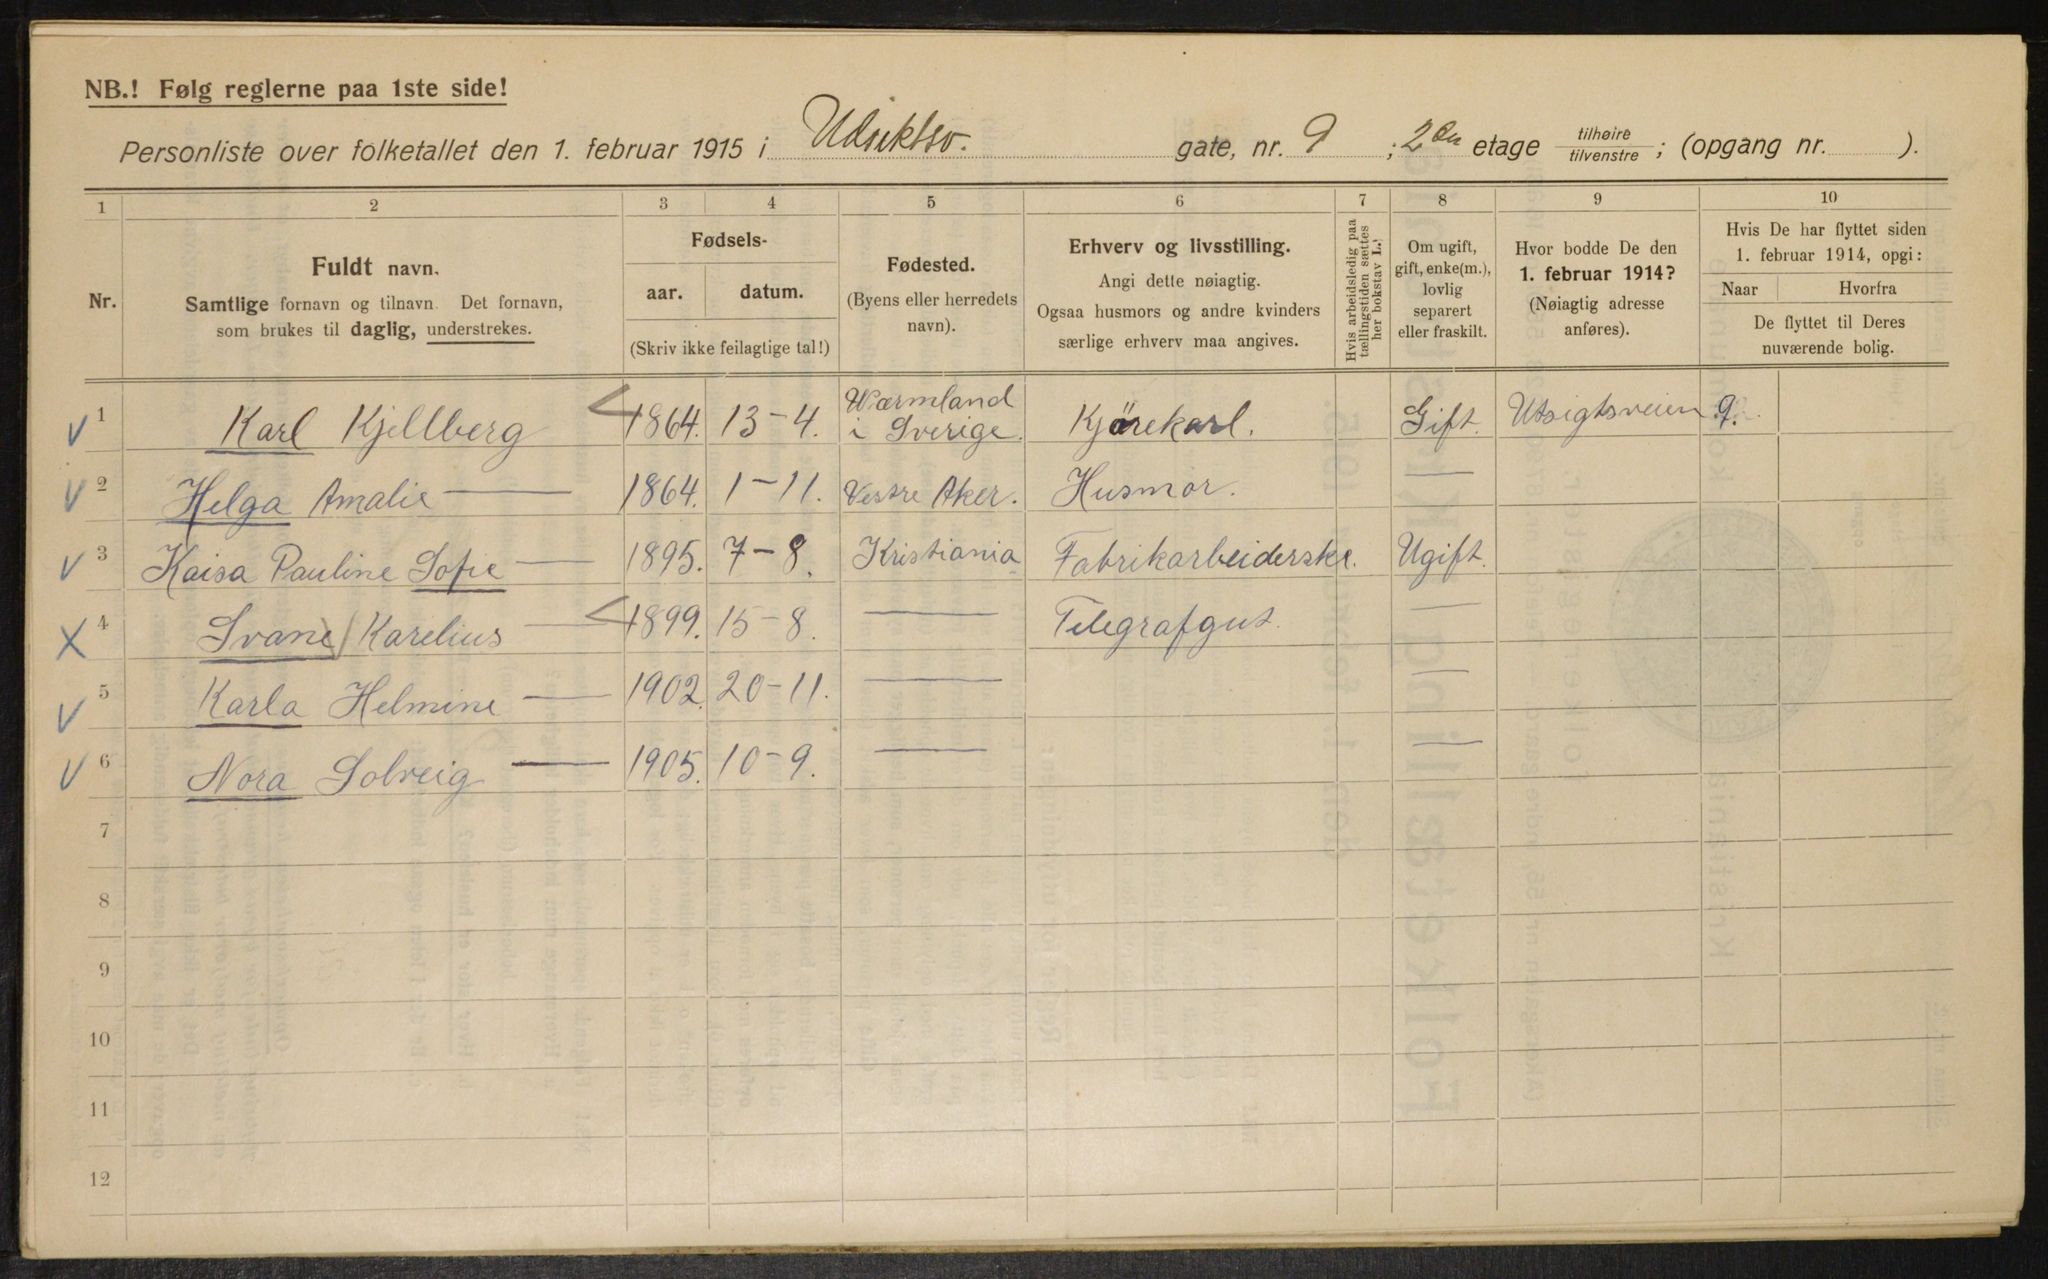 NB.! Følg reglerne paa 1ste side!
Personliste over folketallet den 1. februar 1915 i Udsiktsv. gate, nr. 9 ; 2den etage tilhøire/tilvenstre ; (opgang nr. ).
1 2 3 4 5 6 7 8 9 10
Nr.
Fuldt navn.
Samtlige fornavn og tilnavn. Det fornavn,
som brukes til daglig, understrekes.
Fødsels-
aar. datum.
(Skriv ikke feilagtige tal!)
Fødested.
(Byens eller herredets
navn).
Erhverv og livsstilling.
Angi dette nøiagtig.
Ogsaa husmors og andre kvinders
særlige erhverv maa angives.
Hvis arbeidsledig paa
tællingstiden sættes
her bokstav L.!
Om ugift,
gift, enke(m.),
lovlig
separert
eller fraskilt.
Hvor bodde De den
1. februar 1914?
(Nøiagtig adresse
anføres).
Hvis De har flyttet siden
1. februar 1914, opgi:
Naar Hvorfra
De flyttet til Deres
nuværende bolig.
1 Karl Kjellberg 1864. 13-4. Wærmland i Sverige. Kjørekarl. Gift. Utsigtsveien 9.
2 Helga Amalie — 1864. 1-11. Vestre Aker. Husmor. —
3 Kaisa Pauline Sofie — 1895. 7-8. Kristiania Fabrikarbeiderske. Ugift.
4 Svane Karelius — 1899. 15-8. — Telegrafgut. —
5 Karla Helmine — 1902. 20-11. — —
6 Nora Solveig — 1905. 10-9. — —
7
8
9
10
11
12